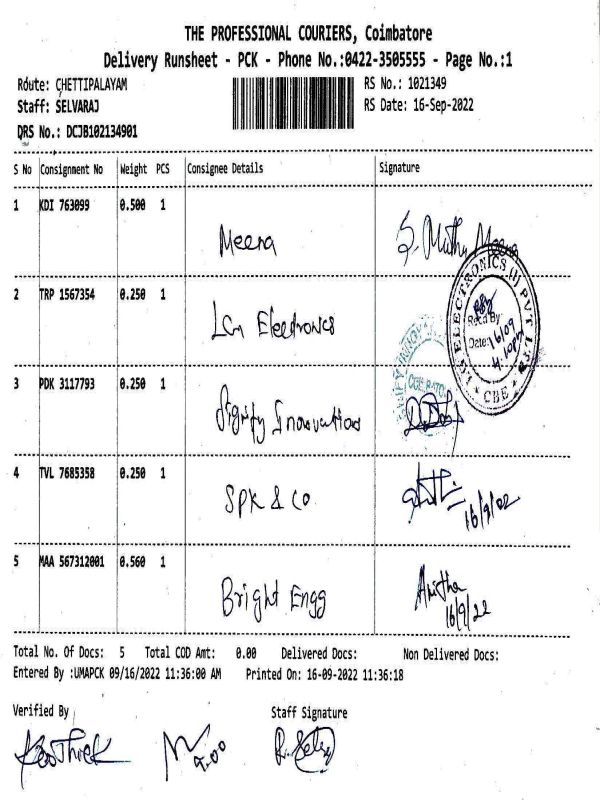 THE PROFESSIONAL COURIERS, Coimbatore
Delivery Runsheet - PCK - Phone No.:0422-3505555 - Page No.:1
Route: CHETTIPALAYAM
RS No.: 1021349
Staff: SELVARAJ
RS Date: 16-Sep-2022
DRS No.: DCJB102134901
S No Consignment No Weight PCS Consignee Details Signature
1 KDI 763099 0.500 1 Meena S. Muthu Meena
2 TRP 1567354 0.250 1 LG Electronics
LG ELECTRONICS (I) PVT LTD
Recd By
Date: 16/09
4.10pm
CBE
3 PDK 3117793 0.250 1 Dignify Innovation
4 TVL 7685358 0.250 1 SPK & Co
5 MAA 567312001 0.560 1 Bright Engg Anitha
16/9/22
Total No. Of Docs: 5 Total COD Amt: 0.00 Delivered Docs: Non Delivered Docs:
Entered By :UMAPCK 09/16/2022 11:36:00 AM Printed On: 16-09-2022 11:36:18
Verified By Staff Signature
9.00